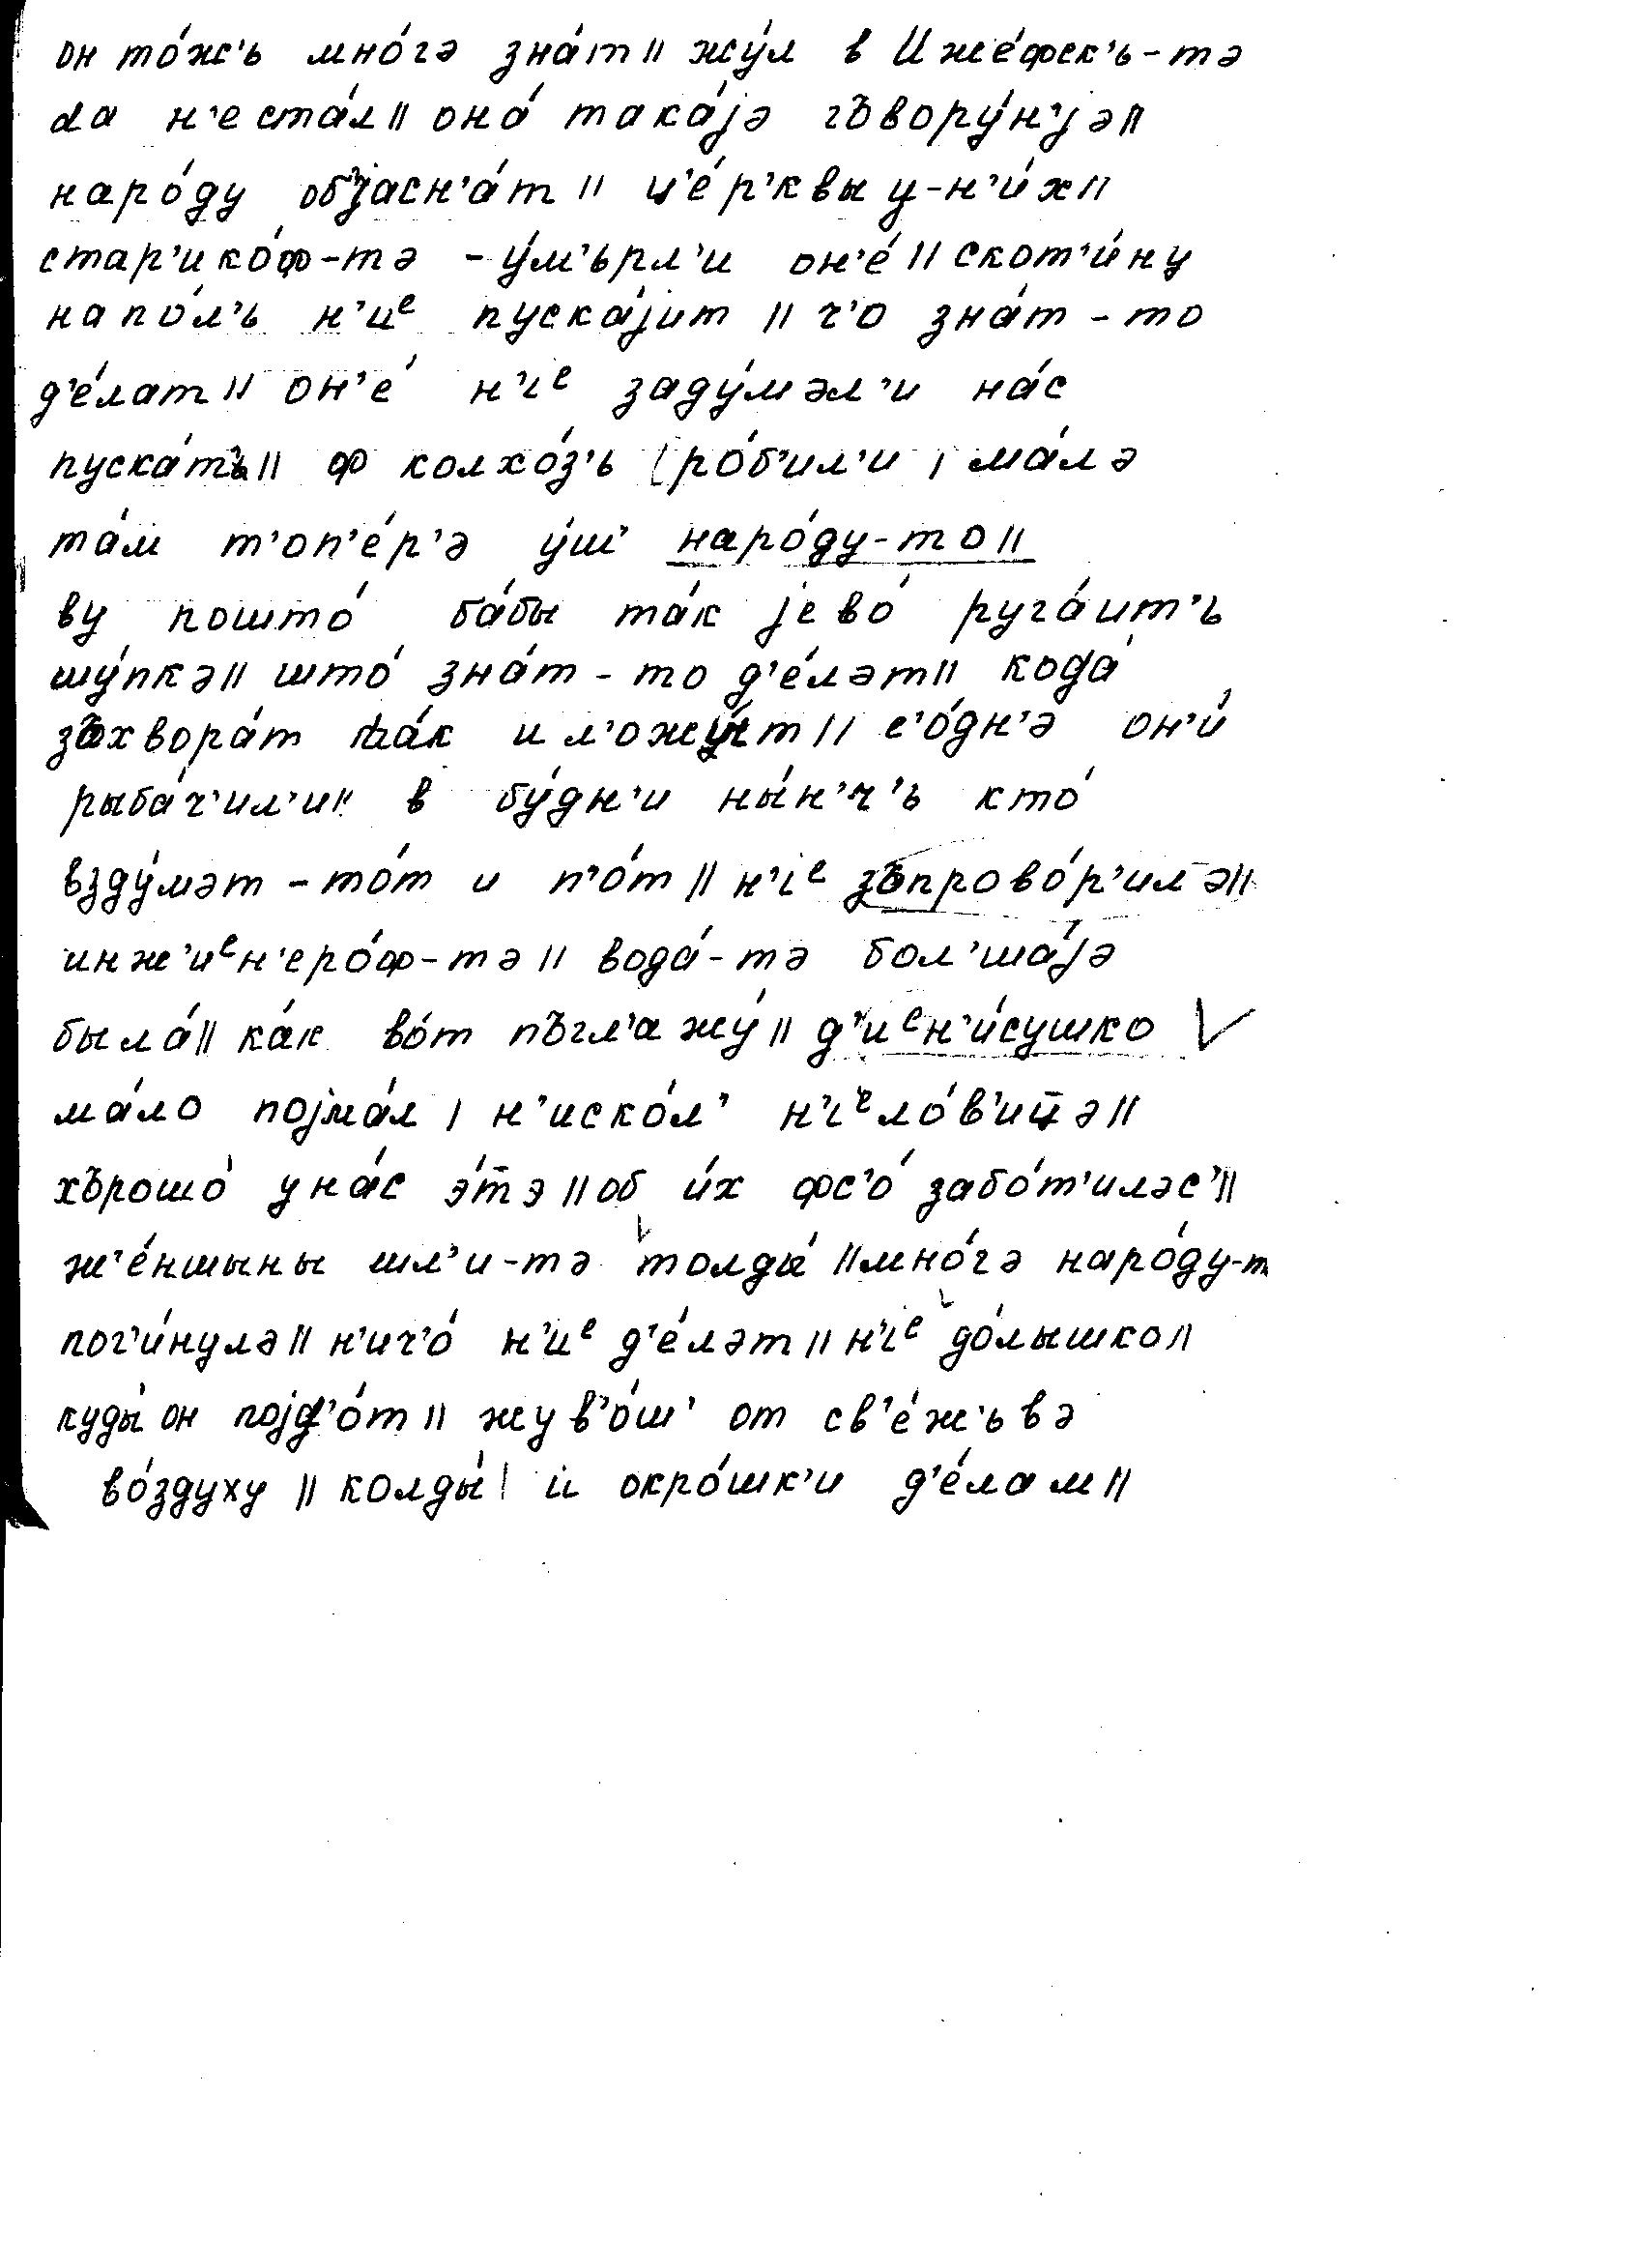 он то́ж'ь мно́гə зна́т || жу́л в Иже́фск'ь-тə
да н'еста́л || она́ така́jə гъвору́н'jə ||
наро́ду объjасн'а́т || ц'е́р'квы у-н'и́х ||
стар'ико́ф-тə - у́м'ьрл'и он'е́ || скот'и́ну
напо́л'ь н'иᵉ пуска́jит || ч'о зна́т-то
д'е́лат || он'е́ н'iᵉ заду́мəл'и на́с
пуска́т' || ф колхо́з'ь ро́б'ил'и | ма́лə
та́м т'оп'е́р'ə у́ш' наро́ду-то ||
ву пошто́ ба́бы та́к jево́ руга́ит'ь
шу́пкə || што́ зна́т-то д'е́лəт || кода́
зъхвора́т та́к и л'ожу́т || с'о́дн'ə он'и́
рыба́ч'ил'и || в бу́дн'и ны́н'ч'ь кто́
взду́мəт - то́т и п'о́т || н'iᵉ зъпрово́р'илə ||
инж'иᵉн'еро́ф-тə || вода́-тə бол'ша́jə
была́ || ка́к во́т пъгл'ажу́ || д'иᵉн'и́сушко
ма́ло поjма́л | н'иско́л' н'iᵉло́в'ит̄ə ||
хърошо́ уна́с э́т̄э || об и́х фс'о́ забо́т'илəс' ||
ж'е́ншыны шл'и-тə толды́ || мно́гə наро́ду-т
пог'и́нулə || н'ич'о́ н'иᵉ д'е́лəт || н'iᵉ до́лышко ||
куды́ он поjд'о́т || жув'о́ш' от св'е́ж'ьвə
во́здуху || колды́ | и окро́шк'и д'е́лам ||